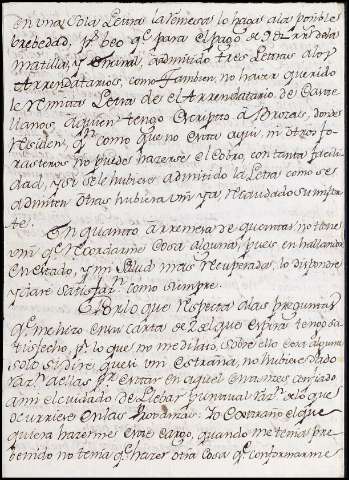 en una sola Letra la remesa lo haga a la posible
brebedad, pr. beo qe. para el pago de
Matilla, y admitido tres Letras a los
Arrendatarios, como tambien no haver querido
le remita Letra de el Arrendatario de Caste
llanos, a quien tengo escripto a Brozas, donde
reside, como que no esta aqui, ni otros fo
rasteros no puede hazerse el Cobro, con tanta facili
dad, y si se le hubiere admitido la Letra como se
admiten otras hubiera vm ya recaudado su impor
te.
En quanto a remesa de quentas no tiene
vm qe. recordarme cosa alguna, pues en hallandome
en estado, y mi salud mas recuperada, lo dispondre
y dare satisfazn. como siempre.
Por lo que respecta a las preguntas
qe. me hizo en su carta de tengo sa
tisfecho, pr. lo que no me dilato sobre ello cosa alguna
solo si dire, que si vm estraña, no hubiere dado
razn. de ellas pr. estar en aquel entonces confiado
a mi el cuidado de llebar puntual razn. de lo que
ocurriere en las Lo Contrario el que
quiera hazerme este cargo, quando me tenia pre
benido no tenia qe. hazer otra cosa qe. conformarme